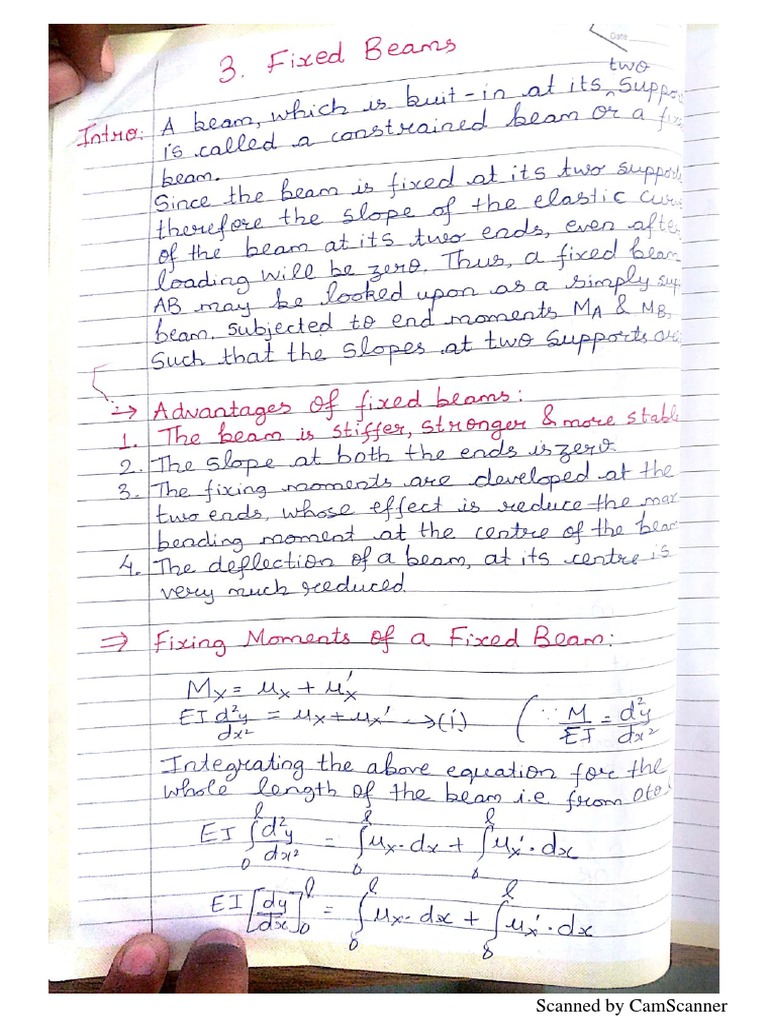 Date
3. Fixed Beams
two
Intro: A beam, which is buit-in at its ^ Suppo
is called a constrained beam or a fix
beam.
Since the beam is fixed at its two support
therefore the slope of the elastic curv
of the beam at its two ends, even afte
loading will be zero. Thus, a fixed beam
AB may be looked upon as a simply sup
beam. Subjected to end moments MA & MB,
Such that the slopes at two supports are
→ Advantages of fixed beams:
1. The beam is stiffer, stronger & more stable
2. The slope at both the ends is zero.
3. The fixing moments are developed at the
two ends, whose effect is reduce the max
bending moment at the centre of the beam
4. The deflection of a beam, at its centre is
very much reduced.
⇒ Fixing Moments of a Fixed Beam:
Mx = μx + μx'
EI d²y/dx² = μx + μx' → (i) (∵ M/EI = d²y/dx²
Integrating the above equation for the
whole length of the beam i.e. from 0 to l
EI ∫₀ˡ d²y/dx² = ∫₀ˡ μx · dx + ∫₀ˡ μx' · dx
EI [dy/dx]₀ˡ = ∫₀ˡ μx · dx + ∫₀ˡ μx' · dx
Scanned by CamScanner